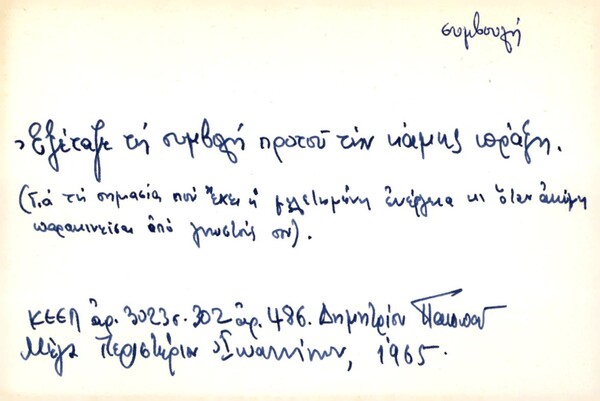 συμβουλή
Ἐξέταζε τή συμβολή προτοῦ τήν κάμῃς πράξη.
(Γιά τή σημασία πού ἔχει ἡ μελετημένη ἐνέργεια κι ὅταν ἀκόμη
παρακινεῖσαι ἀπό γνωστούς σου).
ΚΕΕΛ ἀρ. 3023 σ. 302 ἀρ. 486. Δημητρίου
Μέγα Περιστέριον Ἰωαννίνων, 1965.